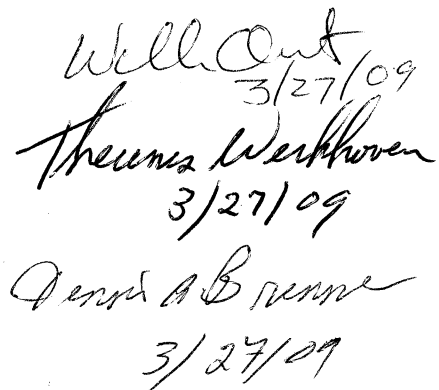 3/27/09
Theunis Werkhoven
3/27/09
Dennis A. Brenne
3/27/09